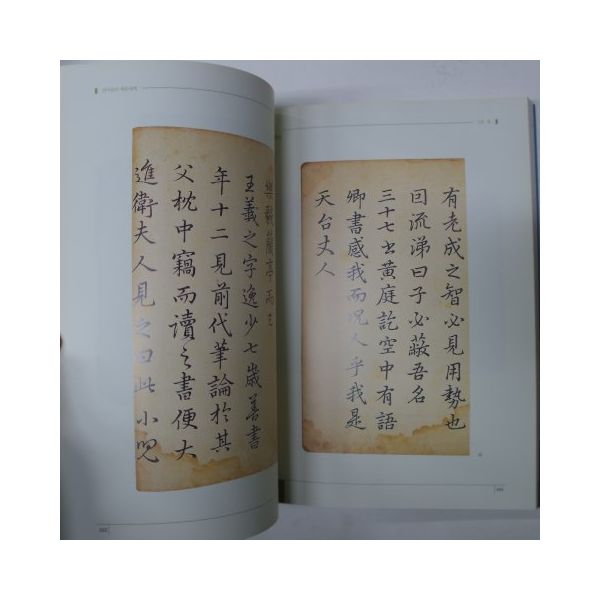 王羲之字逸少七歲善書
年十二見前代筆論於其
父枕中竊而讀之書便大
進衛夫人見之曰此小兒
有老成之智必見用勢也
囙流涕曰子必蔽吾名
三十七书黃庭訖空中有語
卿書感我而况人乎我是
天台丈人